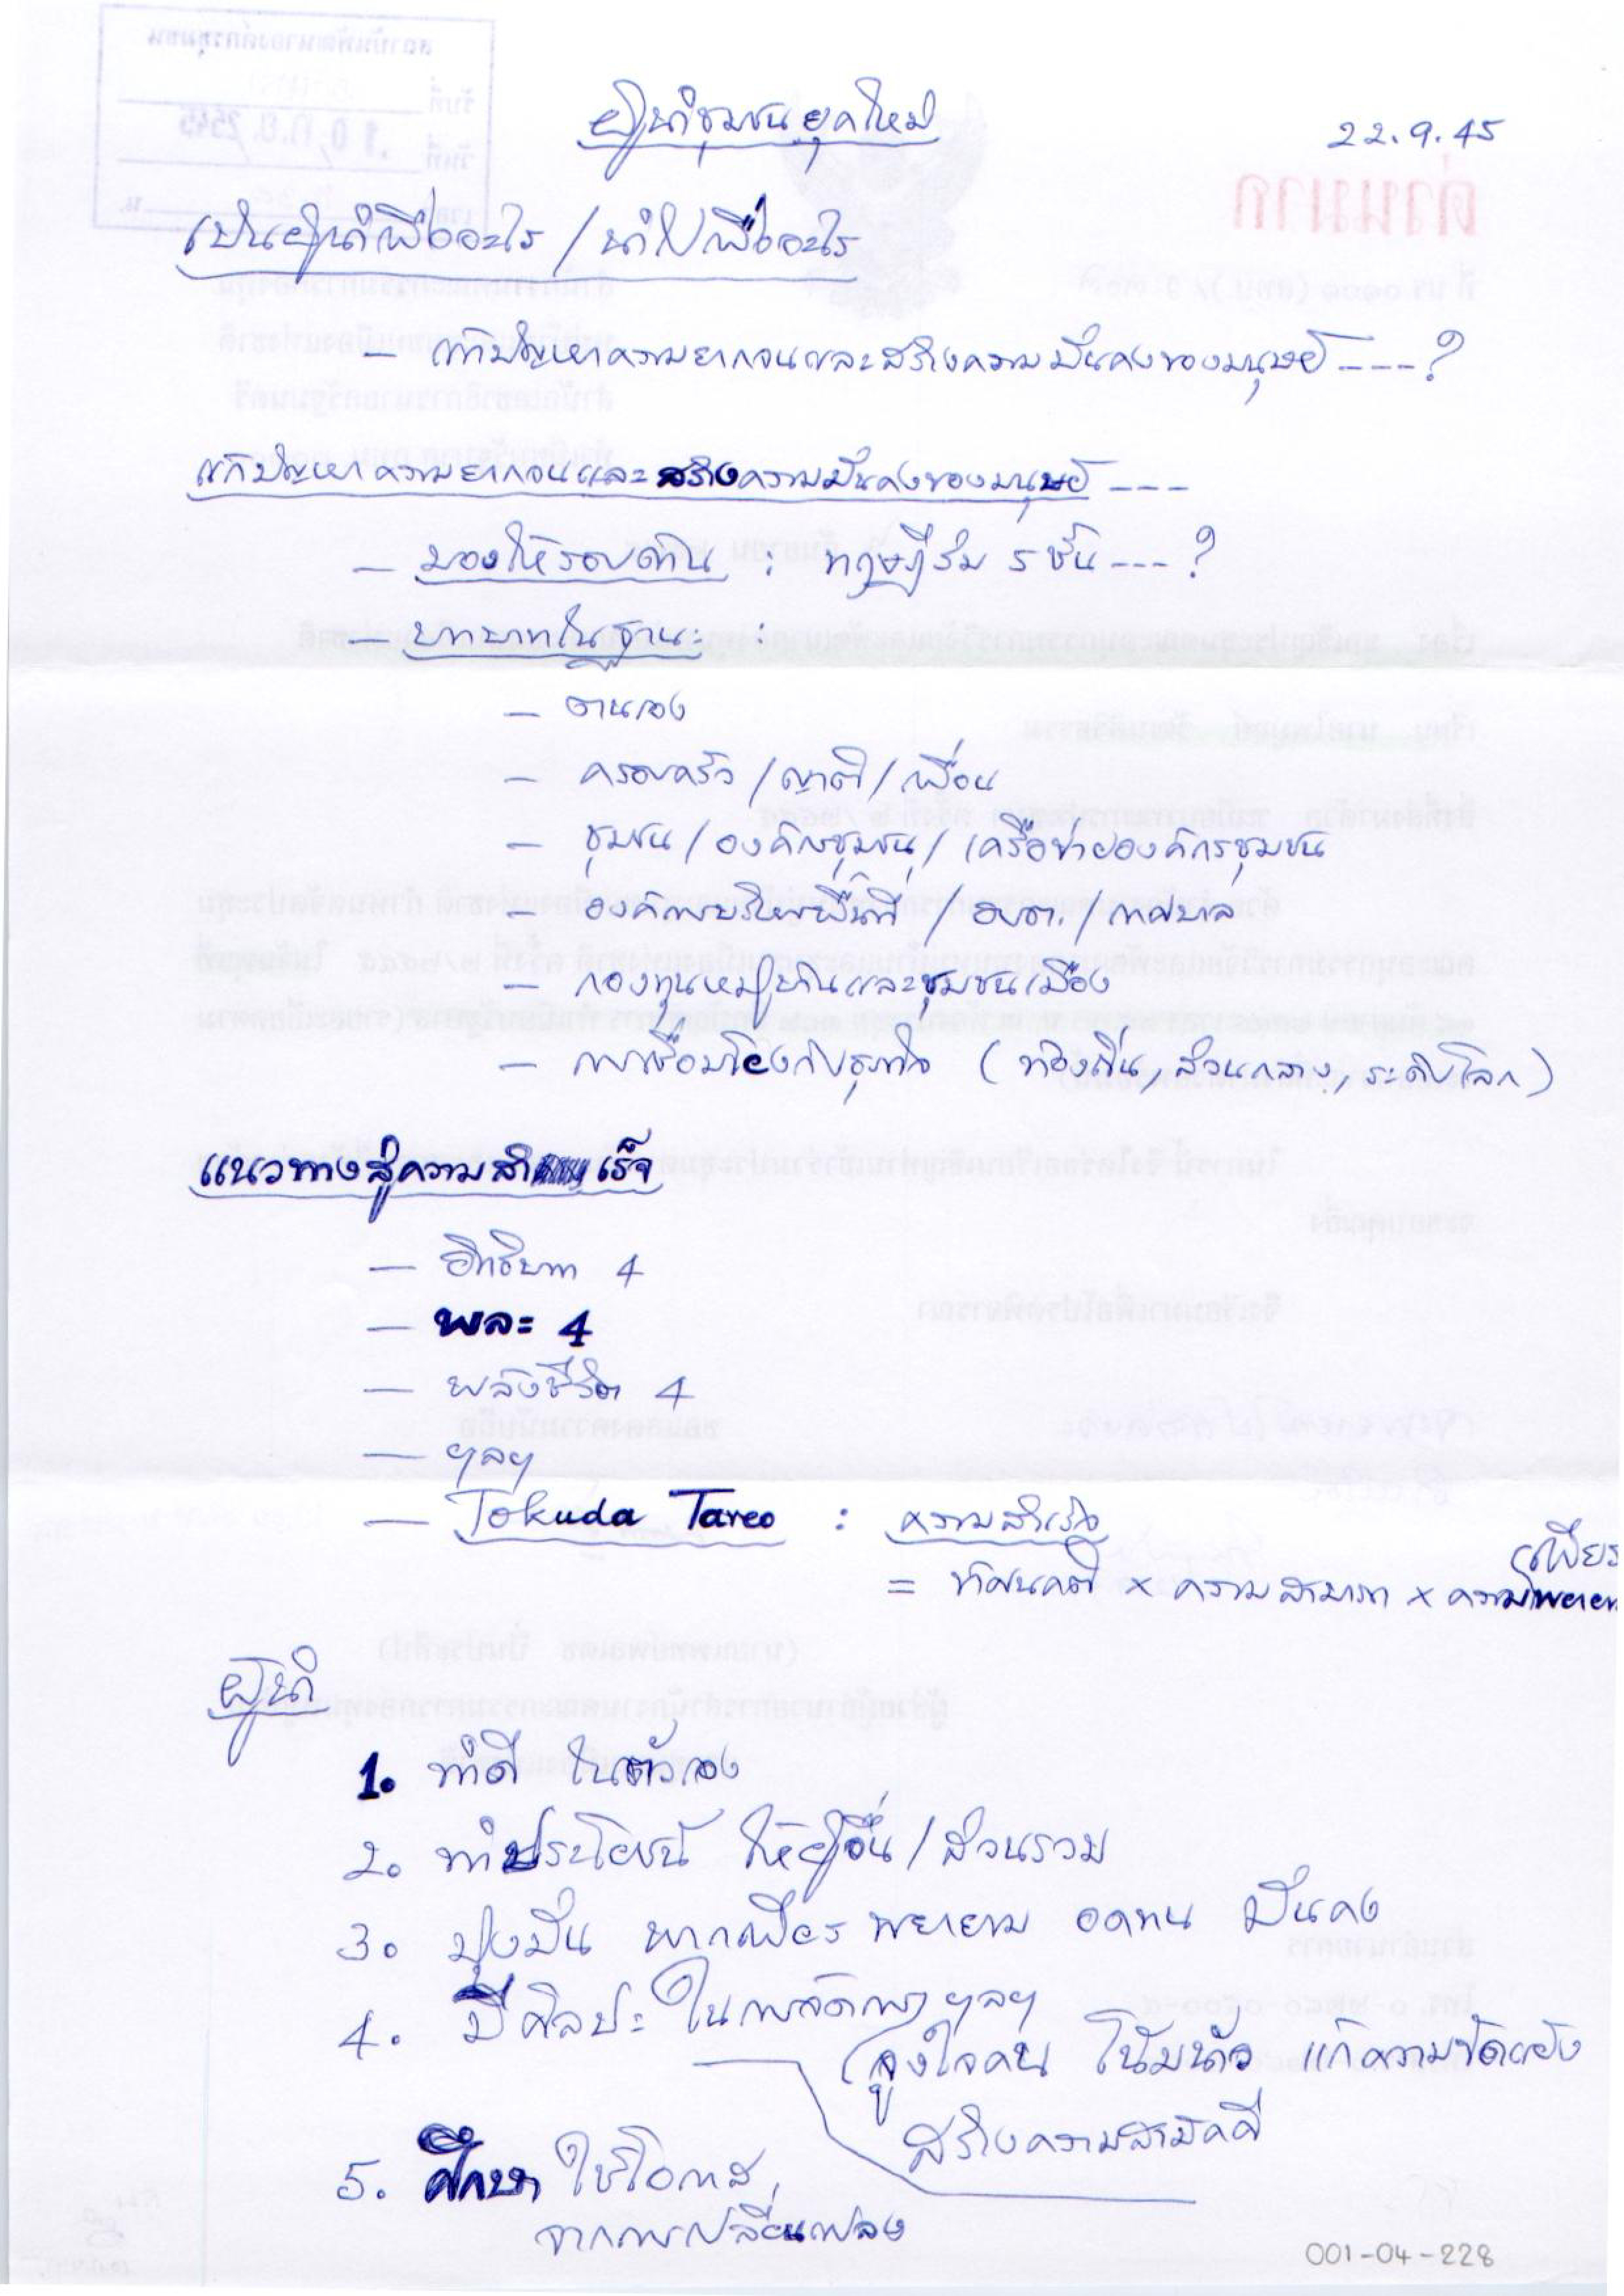 ผู้นำชุมชนยุคใหม่
22.9.45
เป็นผู้นำเพื่ออะไร / นำไปเพื่ออะไร
– แก้ปัญหาความยากจนและสร้างความมั่นคงของมนุษย์ ----?
แก้ปัญหาความยากจนและสร้างความมั่นคงของมนุษย์ ---
– มองให้รอบด้าน : ทฤษฎีร่ม 5 ชั้น ---?
– บทบาทในฐานะ :
– ตนเอง
– ครอบครัว / ญาติ / เพื่อน
– ชุมชน / องค์กรชุมชน / เครือข่ายองค์กรชุมชน
– องค์การบริหารพื้นที่ / อบต. / เทศบาล
– กองทุนหมู่บ้านและชุมชนเมือง
– การเชื่อมโยงกับธุรกิจ (ท้องถิ่น, ส่วนกลาง, ระดับโลก)
แนวทางสู่ความสำเร็จ
– อิทธิบาท 4
– พละ 4
– พลังชีวิต 4
– ฯลฯ
– Tokuda Tareo : ความสำเร็จ
เพียร
= ทัศนคติ × ความสามารถ × ความพยายาม
ผู้นำ
1. ทำดี ในตัวเอง
2. ทำประโยชน์ ให้ผู้อื่น / ส่วนรวม
3. มุ่งมั่น พากเพียร พยายาม อดทน มั่นคง
4. มีศิลปะ ในการจัดการ ฯลฯ
(จูงใจคน โน้มน้าว แก้ความขัดแย้ง
สร้างความสามัคคี
5. ศึกษา ใช้โอกาส
จากการเปลี่ยนแปลง
001-04-228